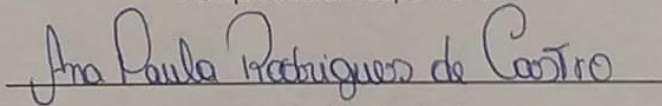 Ana Paula Rodrigues de Castro